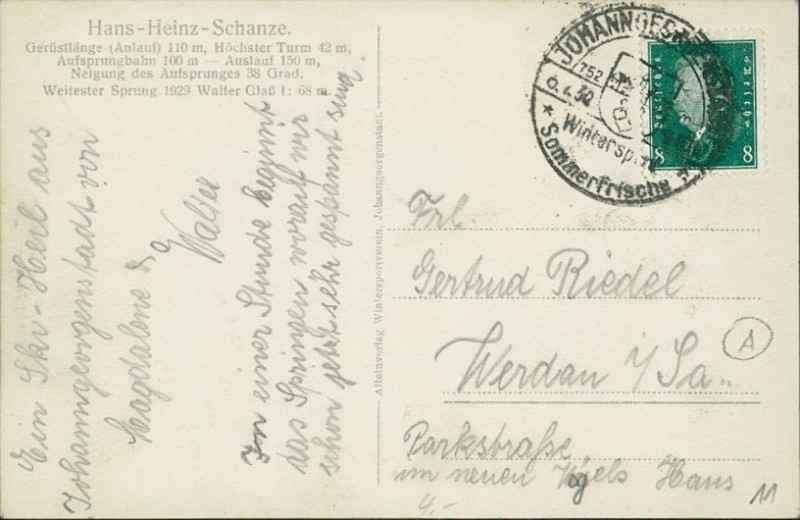 Hans-Heinz-Schanze.
Gerüstlänge (Anlauf) 110 m, Höchster Turm 42 m,
Aufsprungbahn 100 m — Auslauf 150 m,
Neigung des Aufsprunges 38 Grad.
Weitester Sprung 1929 Walter Glaß I: 68 m.
Ein Ski-Heil aus
Johanngeorgenstadt von
Magdalene &
Walter
In einer Stunde beginnt
das Springen worauf wir
schon jetzt sehr gespannt sind.
Alleinverlag Wintersportverein, Johanngeorgenstadt.
JOHANNGEORGENSTADT
752
6.4.30
Wintersp
* Sommerfrische
8 8
Frl.
Gertrud Riedel
Werdan i/Sa.
Parkstraße
im neuen Vogels Haus
A
4.-
11